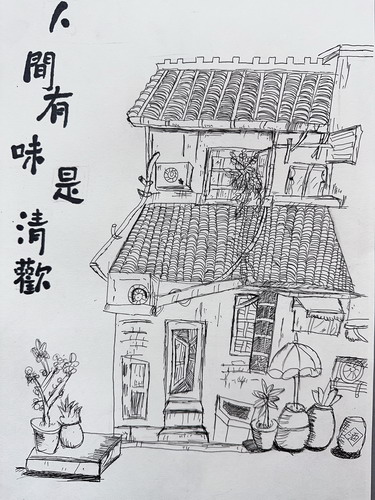 人間有味是清歡